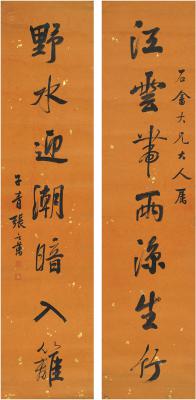 石舍大兄大人属
江雲帶雨涼生竹
野水迎潮暗入籬
子青張之萬